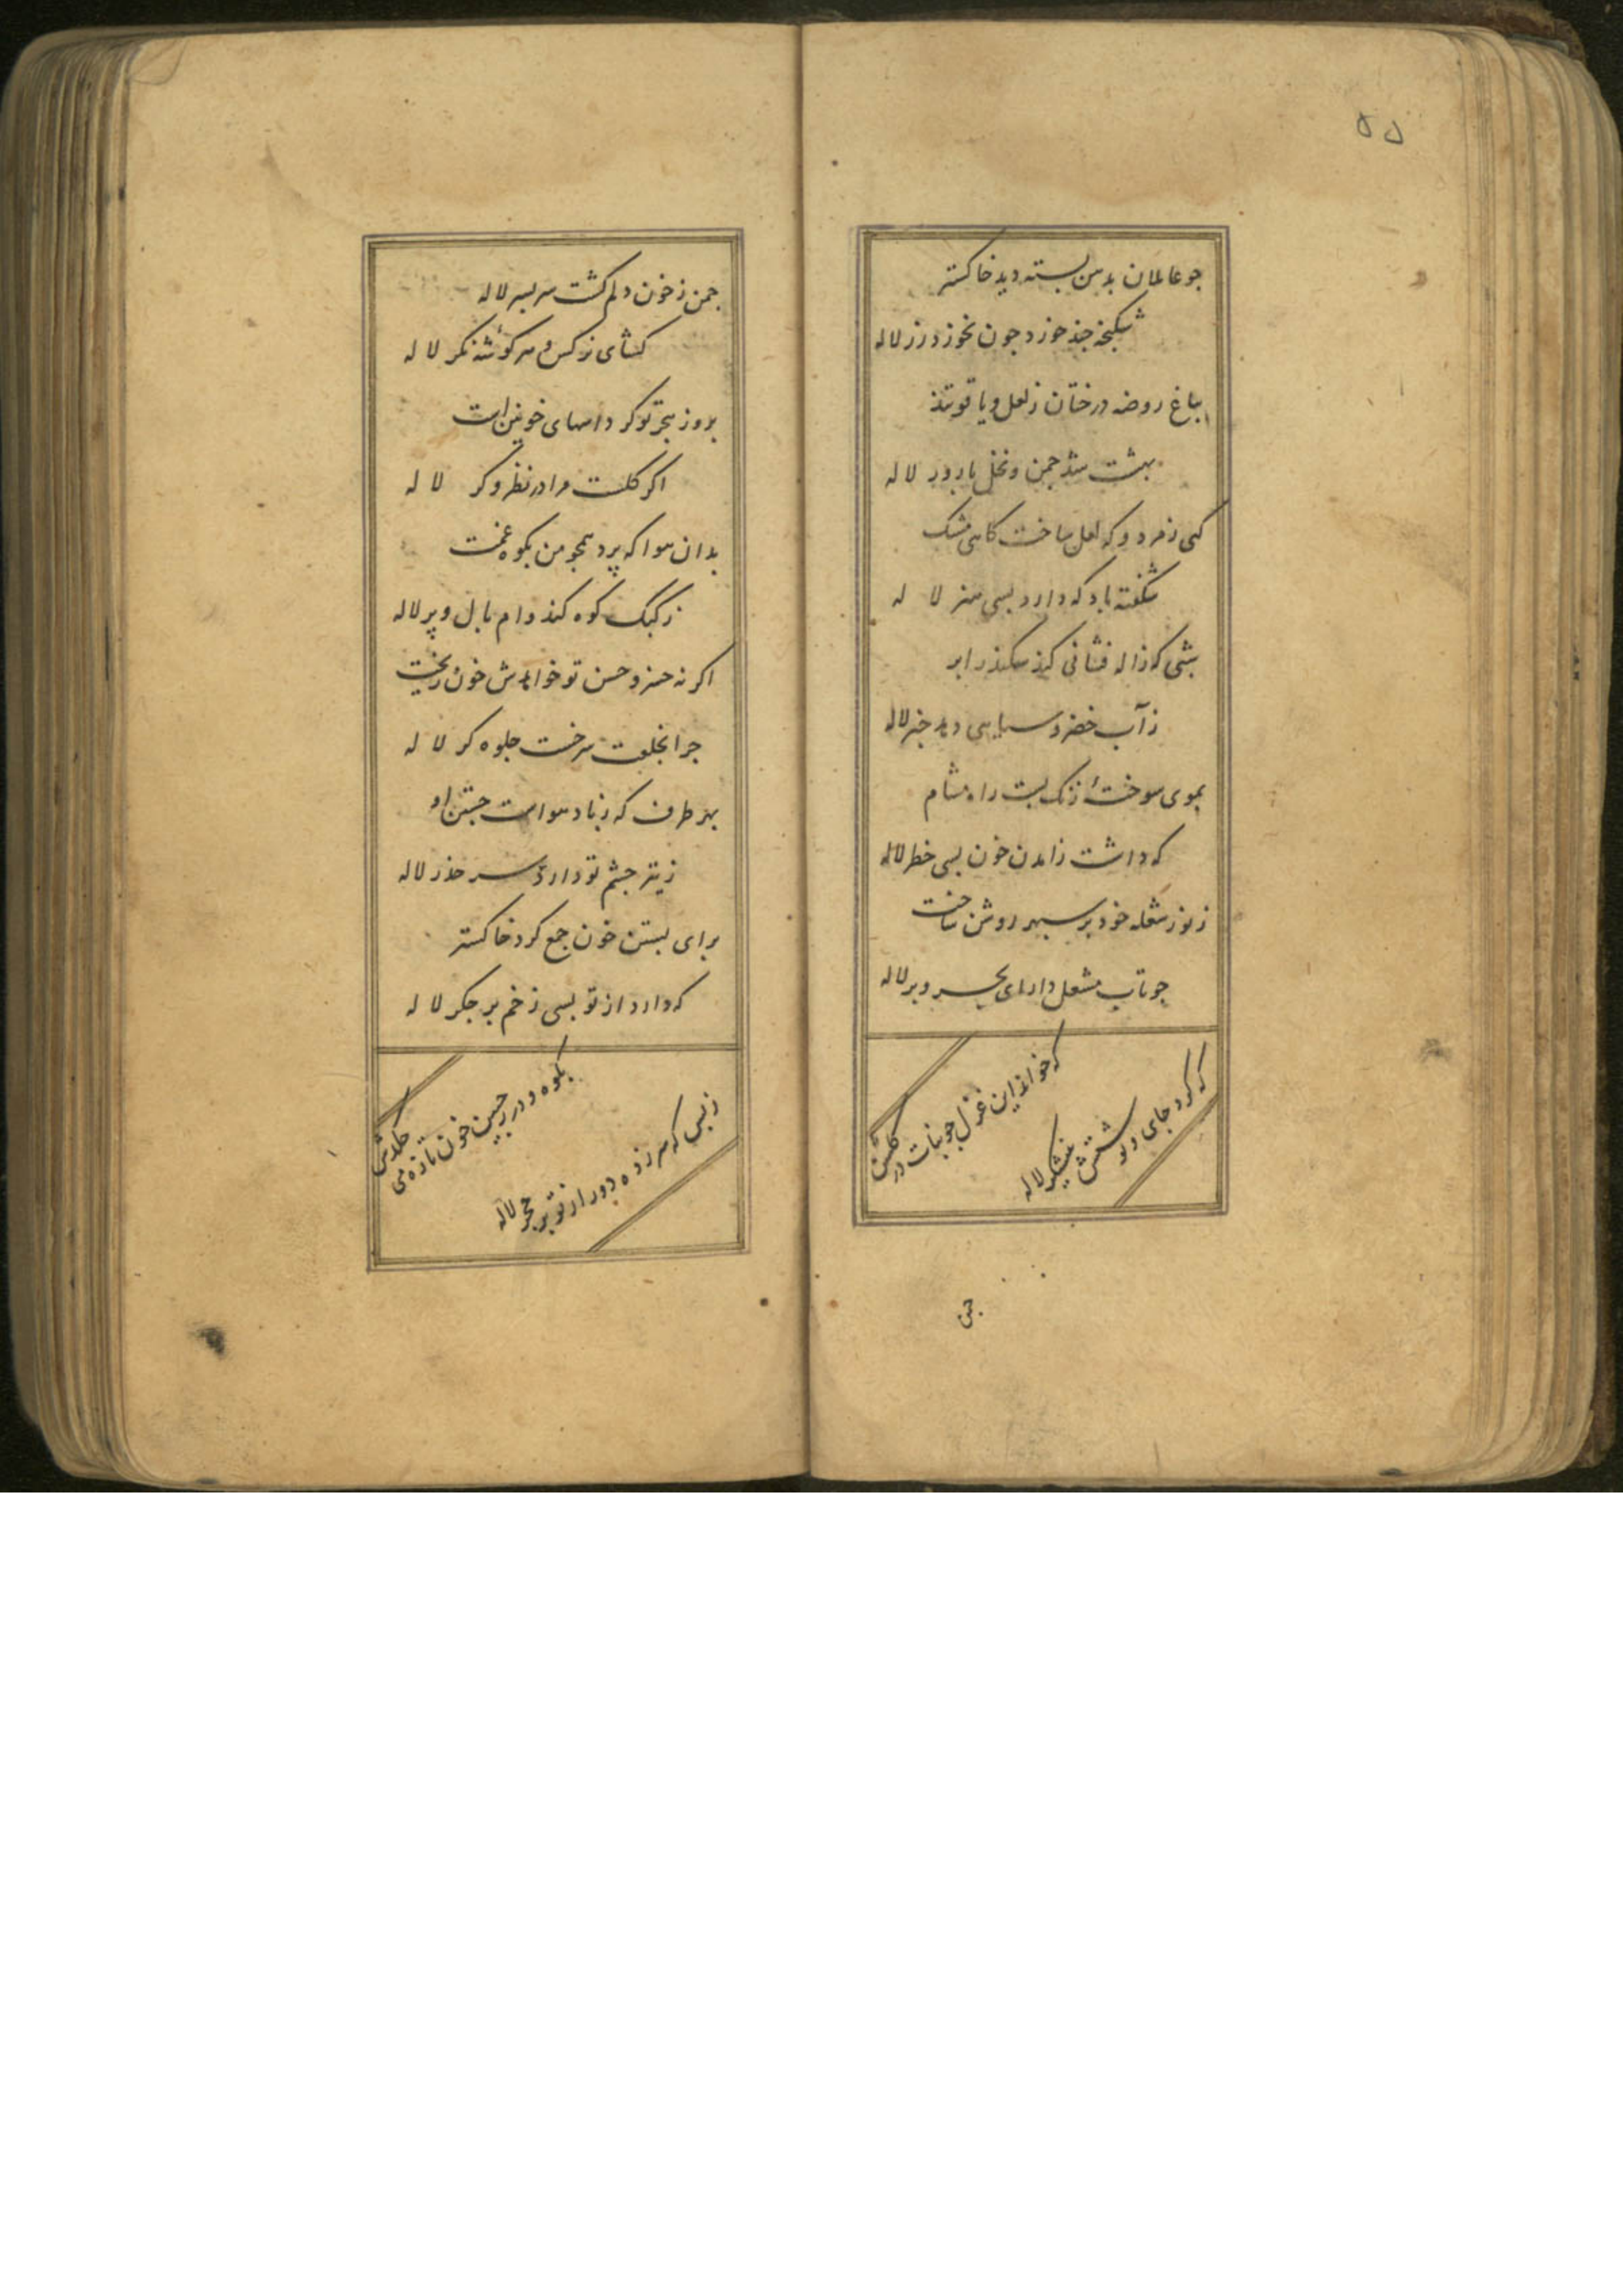 ۵۵
جو عاملان بدمن بسته دید خاکستر
شکنجه جند خورد جون نخورد زر لاله
بباغ روضه درختان ز لعل و یاقوتند
بهشت شد جمن و نخل بارور لاله
کهی زمرد و که لعل ساخت کاهی مشک
شکفته باد که دارد بسی هنر لاله
شبی که ژاله فشانی کند سکندر ابر
ز آب خضر و سیاهی دهد خبر لاله
ببوی سوختهٔ زنک بست راه مشام
که داشت ز آمدن خون بسی خطر لاله
ز نور شعله خود بر سپهر روشن ساخت
جو تاب مشعل دارای بحر و بر لاله
که خواند این غزل جو نبات در کلشن
که کرد جای ونو شتش نیشکر لاله
جمن
جمن ز خون دلم کشت سر بسر لاله
کشای نرکس و هر کوشه نکر لاله
بروز هجر تو کر دامنهای خونین است
اکر کلست مرا در نظر و کر لاله
بدان هوا که پرد همجو من بکوه غمت
ز کبک کوه کند وام بال و پر لاله
اکر نه خسرو حسن تو خواهدش خون ریخت
جرا بخلعت سرخست جلوه کر لاله
بهر طرف که ز باد هواست جستن او
ز تیر جشم تو دارد سر حذر لاله
برای بستن خون جمع کرد خاکستر
که دارد از تو بسی زخم بر جکر لاله
بکوه و در ببین خون تازه می جکدش
ز بس که سر زده دور از تو بر حجر لاله